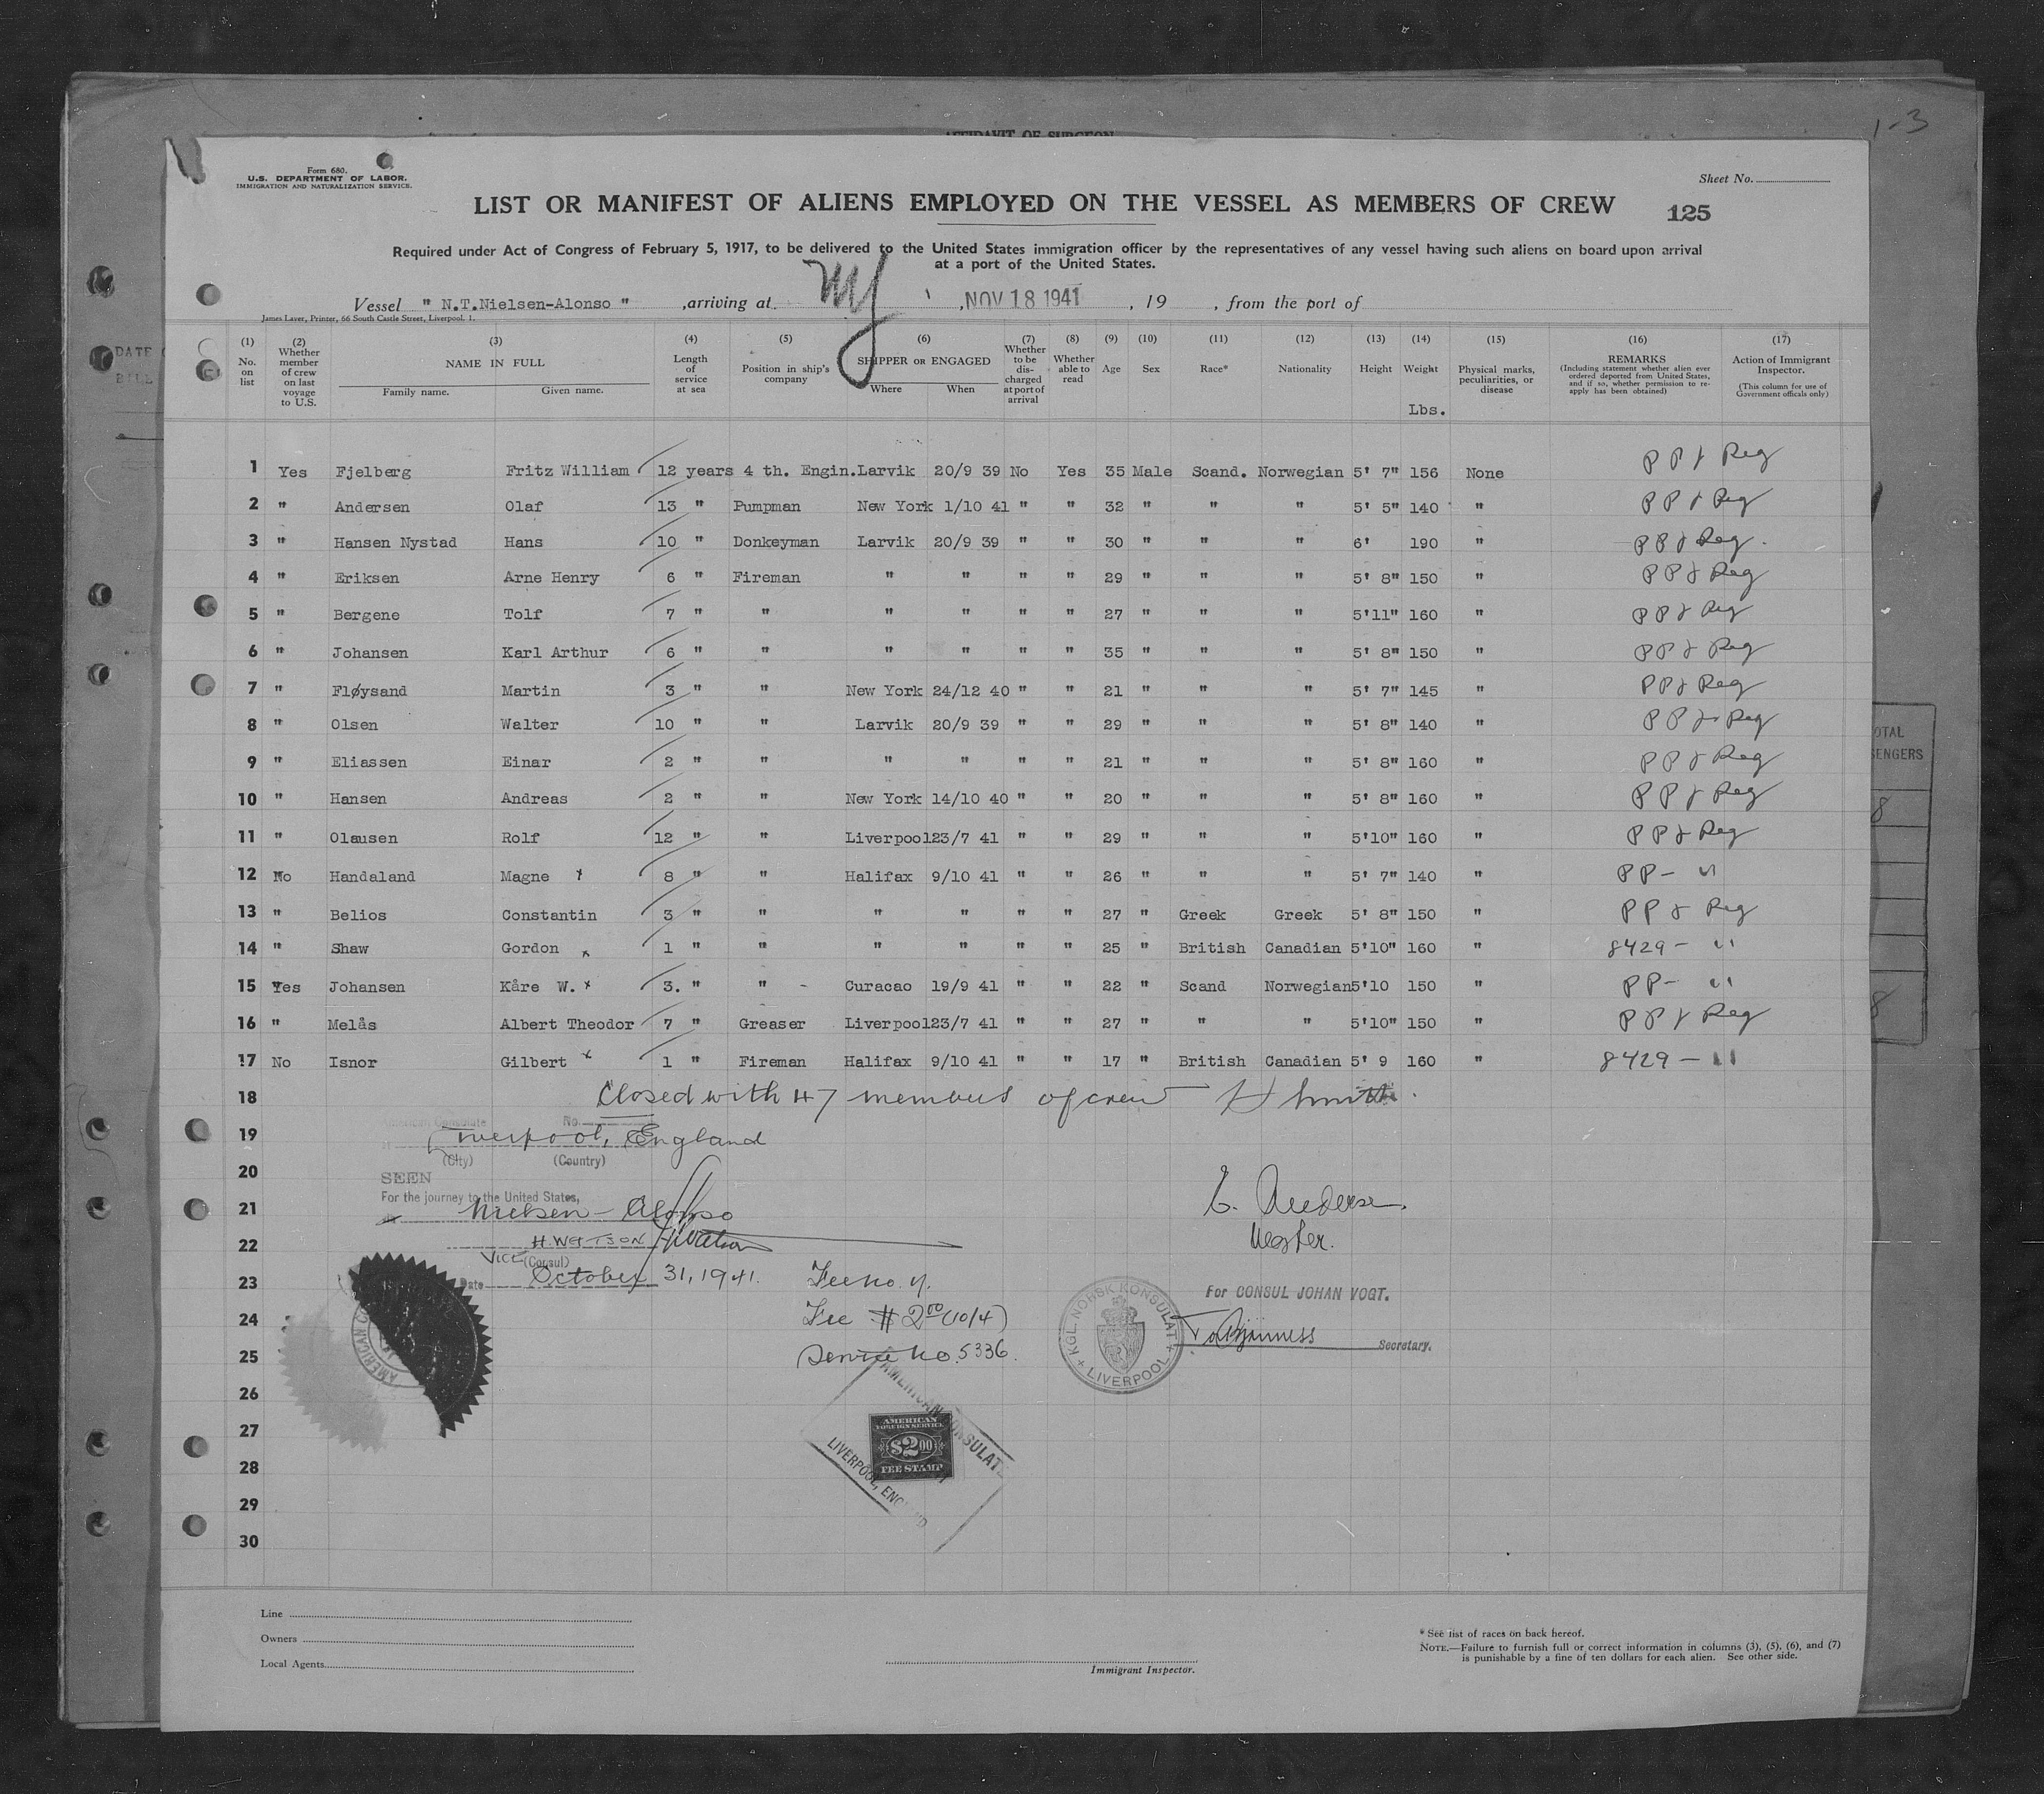 AFFIDAVIT OF SURGEON
1-3
Form 680.
U.S. DEPARTMENT OF LABOR.
IMMIGRATION AND NATURALIZATION SERVICE.
Sheet No.
LIST OR MANIFEST OF ALIENS EMPLOYED ON THE VESSEL AS MEMBERS OF CREW 125
Required under Act of Congress of February 5, 1917, to be delivered to the United States immigration officer by the representatives of any vessel having such aliens on board upon arrival
at a port of the United States.
Vessel " N.T.Nielsen-Alonso " ,arriving at NY , NOV 18 1941 , 19 , from the port of
James Laver, Printer, 66 South Castle Street, Liverpool. 1.
DATE
BILL
(1) No. on list
(2) Whether member of crew on last voyage to U.S.
(3) NAME IN FULL Family name. Given name.
(4) Length of service at sea
(5) Position in ship's company
(6) SHIPPER OR ENGAGED Where When
(7) Whether to be discharged at port of arrival
(8) Whether able to read
(9) Age
(10) Sex
(11) Race*
(12) Nationality
(13) Height
(14) Weight Lbs.
(15) Physical marks, peculiarities, or disease
(16) REMARKS (Including statement whether alien ever ordered deported from United States, and if so, whether permission to re-apply has been obtained)
(17) Action of Immigrant Inspector. (This column for use of Government officals only)
1 Yes Fjelberg Fritz William 12 years 4 th. Engin. Larvik 20/9 39 No Yes 35 Male Scand. Norwegian 5' 7" 156 None PP & Reg
2 " Andersen Olaf 13 " Pumpman New York 1/10 41 " " 32 " " " 5' 5" 140 " PP & Reg
3 " Hansen Nystad Hans 10 " Donkeyman Larvik 20/9 39 " " 30 " " " 6' 190 " PP & Reg.
4 " Eriksen Arne Henry 6 " Fireman " " " " 29 " " " 5' 8" 150 " PP & Reg
5 " Bergene Tolf 7 " " " " " " 27 " " " 5'11" 160 " PP & Reg
6 " Johansen Karl Arthur 6 " " " " " " 35 " " " 5' 8" 150 " PP & Reg
7 " Fløysand Martin 3 " " New York 24/12 40 " " 21 " " " 5' 7" 145 " PP & Reg
8 " Olsen Walter 10 " " Larvik 20/9 39 " " 29 " " " 5' 8" 140 " PP & Reg
9 " Eliassen Einar 2 " " " " " " 21 " " " 5' 8" 160 " PP & Reg
10 " Hansen Andreas 2 " " New York 14/10 40 " " 20 " " " 5' 8" 160 " PP & Reg
11 " Olausen Rolf 12 " " Liverpool 23/7 41 " " 29 " " " 5'10" 160 " PP & Reg
12 No Handaland Magne x 8 " " Halifax 9/10 41 " " 26 " " " 5' 7" 140 " PP - "
13 " Belios Constantin 3 " " " " " " 27 " Greek Greek 5' 8" 150 " PP & Reg
14 " Shaw Gordon x 1 " " " " " " 25 " British Canadian 5'10" 160 " 8429 - "
15 Yes Johansen Kåre W. x 3. " " - Curacao 19/9 41 " " 22 " Scand Norwegian 5'10 150 " PP - "
16 " Melås Albert Theodor 7 " Greaser Liverpool 23/7 41 " " 27 " " " 5'10" 150 " PP & Reg
17 No Isnor Gilbert x 1 " Fireman Halifax 9/10 41 " " 17 " British Canadian 5' 9 160 " 8429 - "
18 Closed with 47 members of crew H Smith.
American Consulate No.
19 Liverpool, England
(City) (Country)
20 SEEN
For the journey to the United States,
21 Nielsen - Alonso E. Andersen.
22 H. WATSON HWatson Master.
Vice (Consul)
23 Date October 31, 1941. Fee no. 4. For CONSUL JOHAN VOGT.
24 Fee # 2.00 (10/4)
Secretary.
25 Service No. 5336.
KGL. NORSK KONSULAT + LIVERPOOL +
AMERICAN
26
AMERICAN CONSULATE
27 AMERICAN FOREIGN SERVICE
$2.00
28 FEE STAMP
LIVERPOOL, ENGLAND
29
30
TOTAL
PASSENGERS
8
8
Line
Owners
Local Agents
Immigrant Inspector.
* See list of races on back hereof.
NOTE.—Failure to furnish full or correct information in columns (3), (5), (6), and (7)
is punishable by a fine of ten dollars for each alien. See other side.